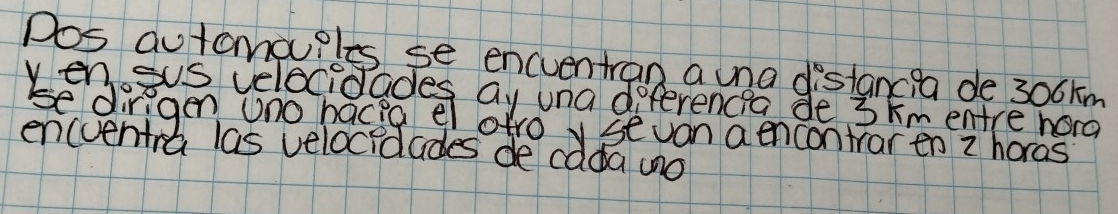 Dos automoviles se encuentran a una distancia de 306km
y en sus velocidades ay una diferencia de 3 km entre hora
se dirigen uno hacia el otro y se van a encontrar en 2 horas
encuentra las velocidades de cada uno